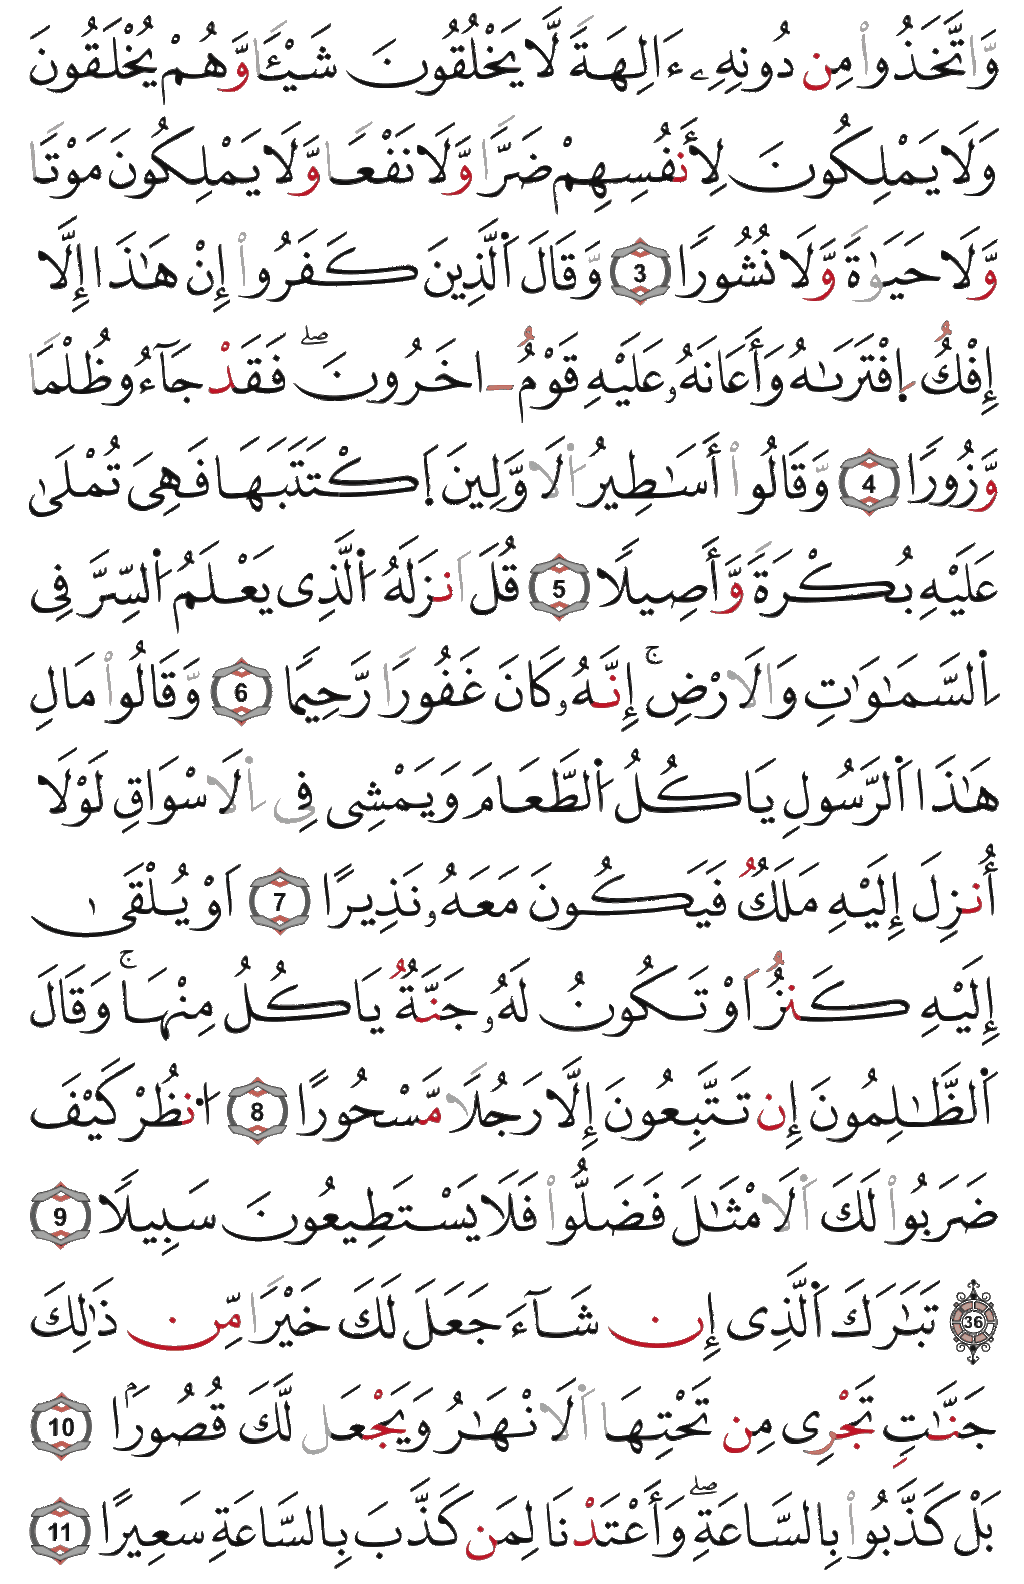 وَّاتَّخَذُواْ مِن دُونِهِۦٓ ءَالِهَةً لَّا يَخْلُقُونَ شَيْـًٔا وَّهُمْ يُخْلَقُونَ
وَلَا يَمْلِكُونَ لِأَنفُسِهِمْ ضَرًّا وَّلَا نَفْعًا وَّلَا يَمْلِكُونَ مَوْتًا
وَّلَا حَيَوٰةً وَّلَا نُشُورًا 3 وَّقَالَ اَلَّذِينَ كَفَرُواْ إِنْ هَٰذَا إِلَّا
إِفْكٌ اِفْتَرَىٰهُ وَأَعَانَهُۥ عَلَيْهِ قَوْمٌ اخَرُونَ ۖ فَقَدْ جَآءُو ظُلْمًا
وَّزُورًا 4 وَّقَالُواْ أَسَٰطِيرُ اُلَاوَّلِينَ اَكْتَتَبَهَا فَهِىَ تُمْلَىٰ
عَلَيْهِ بُكْرَةً وَّأَصِيلًا 5 قُلَ اَنزَلَهُ اُلَّذِى يَعْلَمُ اُلسِّرَّ فِى
اِلسَّمَٰوَٰتِ وَالَارْضِ ۚ إِنَّهُۥ كَانَ غَفُورًا رَّحِيمًا 6 وَّقَالُواْ مَالِ
هَٰذَا اَلرَّسُولِ يَاكُلُ اُلطَّعَامَ وَيَمْشِى فِى اِلَاسْوَاقِ لَوْلَا
أُنزِلَ إِلَيْهِ مَلَكٌ فَيَكُونَ مَعَهُۥ نَذِيرًا 7 اَوْ يُلْقَىٰ
إِلَيْهِ كَنزٌ اَوْ تَكُونُ لَهُۥ جَنَّةٌ يَاكُلُ مِنْهَا ۚ وَقَالَ
اَلظَّٰلِمُونَ إِن تَتَّبِعُونَ إِلَّا رَجُلًا مَّسْحُورًا 8 اُنظُرْ كَيْفَ
ضَرَبُواْ لَكَ اَلَامْثَٰلَ فَضَلُّواْ فَلَا يَسْتَطِيعُونَ سَبِيلًا 9
36 تَبَٰرَكَ اَلَّذِى إِن شَآءَ جَعَلَ لَكَ خَيْرًا مِّن ذَٰلِكَ
جَنَّٰتٍ تَجْرِى مِن تَحْتِهَا اَلَانْهَٰرُ وَيَجْعَل لَّكَ قُصُورًا 10
بَلْ كَذَّبُواْ بِالسَّاعَةِ ۖ وَأَعْتَدْنَا لِمَن كَذَّبَ بِالسَّاعَةِ سَعِيرًا 11